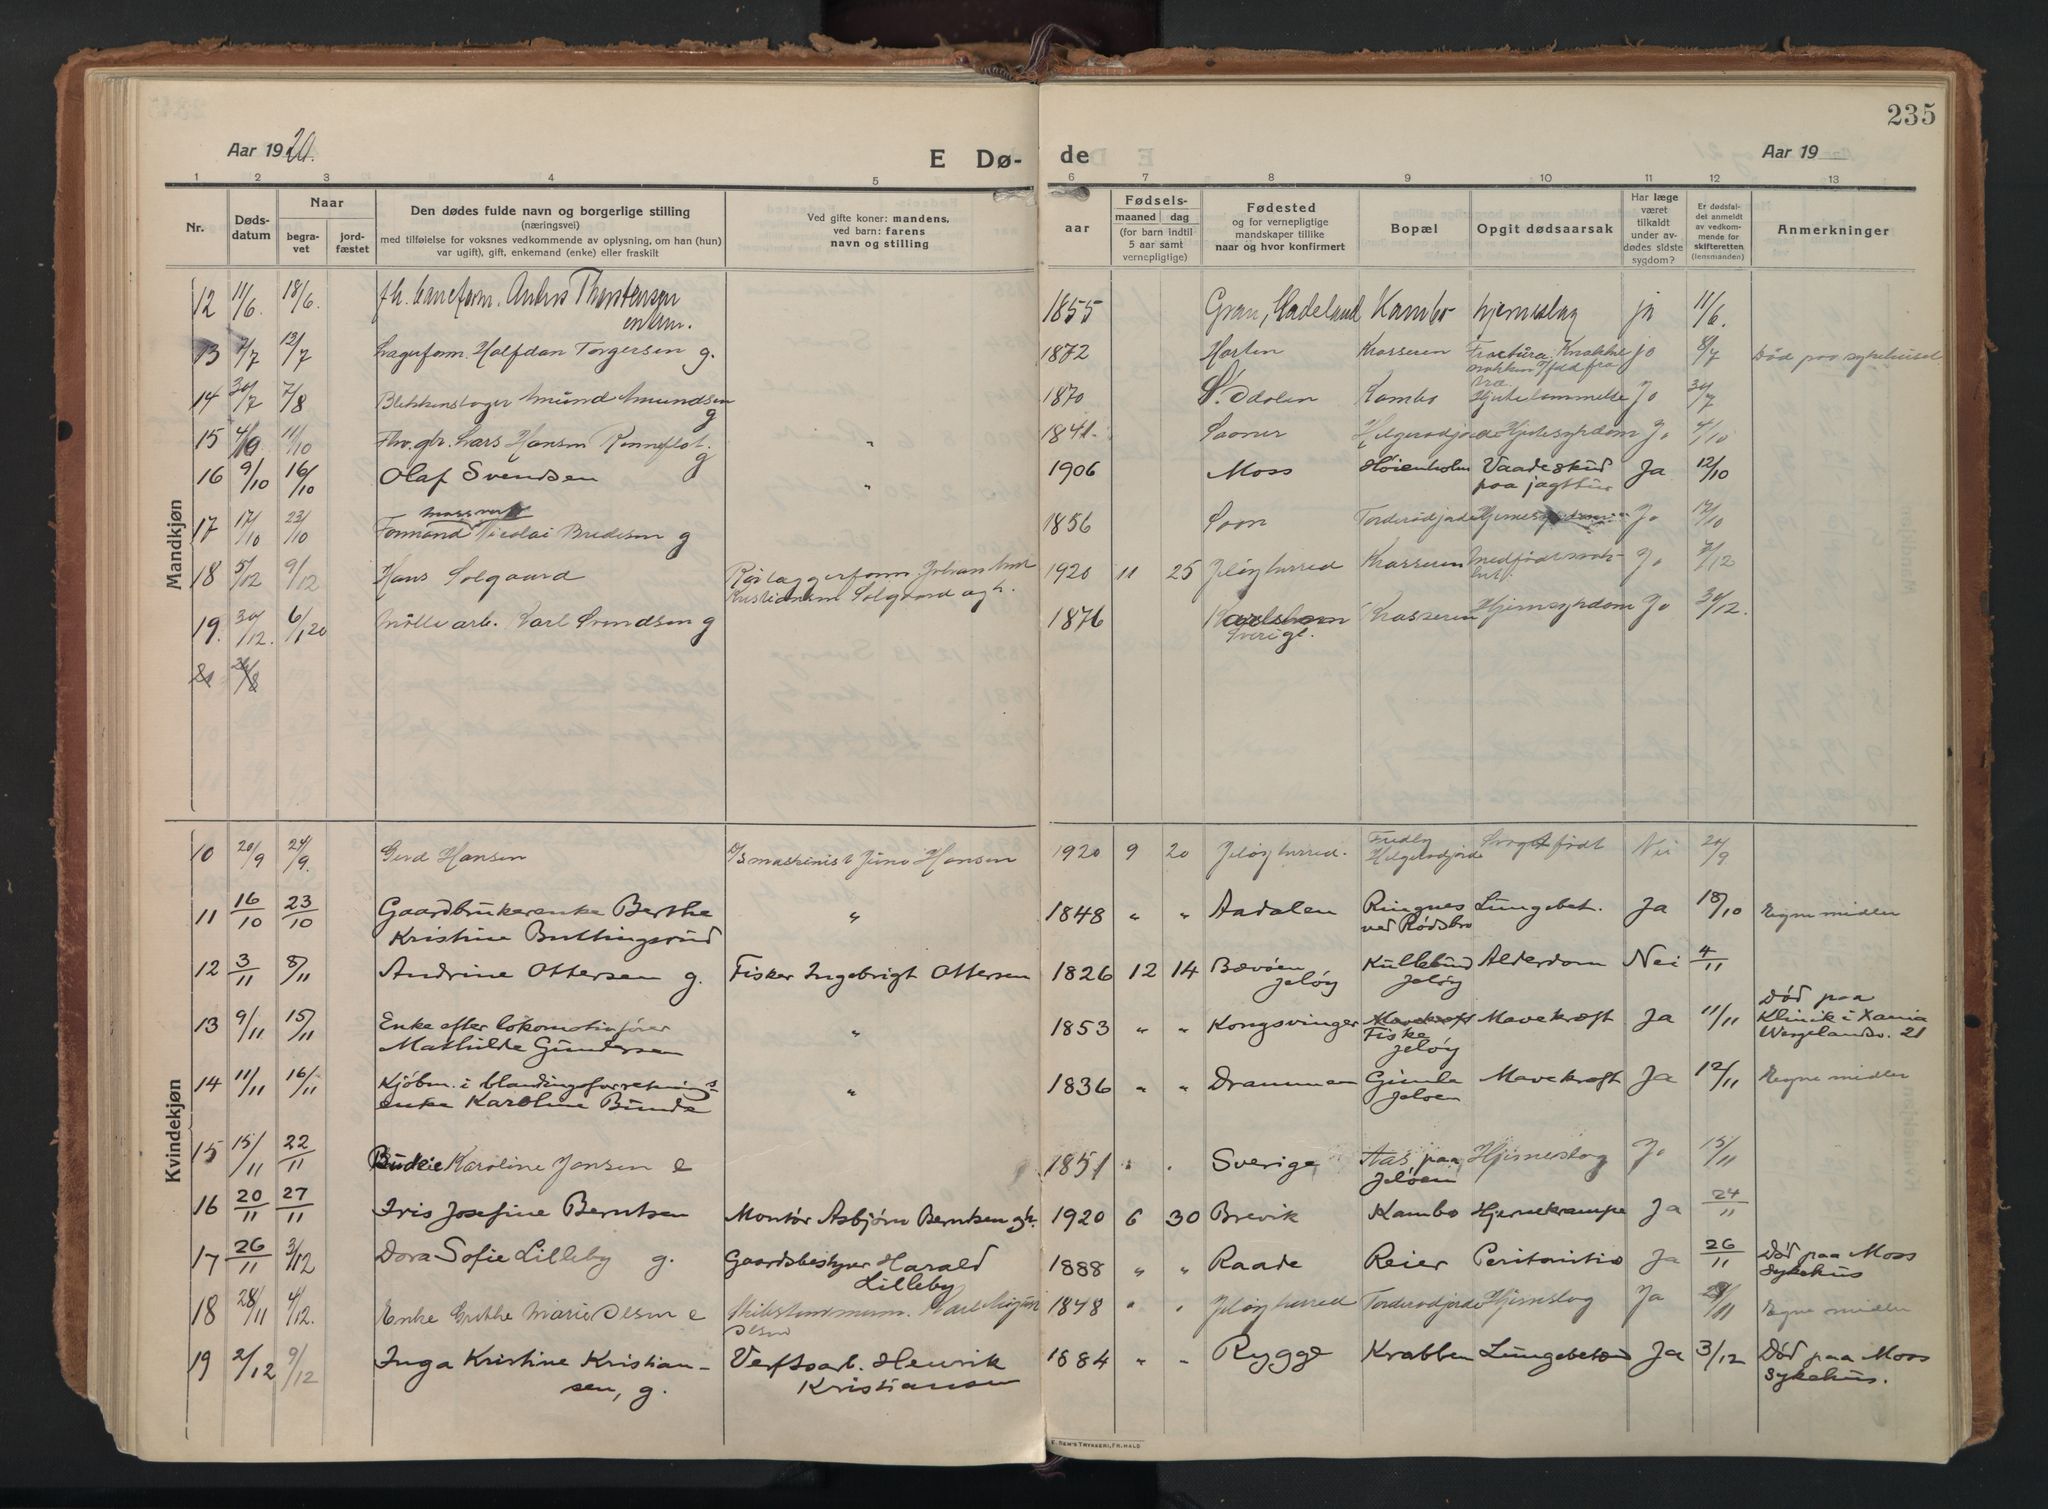 235
Aar 1920.
E Dø-
de
Aar 19
1 2 3 4 5 6 7 8 9 10 11 12 13
Nr.
Døds-
datum
Naar
begra-
vet
jord-
fæstet
Den dødes fulde navn og borgerlige stilling
(næringsvei)
med tilføielse for voksnes vedkommende av oplysning, om han (hun)
var ugift), gift, enkemand (enke) eller fraskilt
Ved gifte koner: mandens,
ved barn: farens
navn og stilling
Fødsels-
aar
maaned
dag
(for barn indtil
5 aar samt
vernepligtige)
Fødested
og for vernepligtige
mandskaper tillike
naar og hvor konfirmert
Bopæl
Opgit dødsaarsak
Har læge
været
tilkaldt
under av-
dødes sidste
sygdom?
Er dødsfal-
det anmeldt
av vedkom-
mende for
skifteretten
(lensmanden)
Anmerkninger
Mandkjøn
12 11/6. 18/6. Anders Thorstensen 1855 Gran, Hadeland Kambo hjerneslag ja 11/6.
enkem.
13 7/7 12/7 Lagerform. Halfdan Torgersen g. 1872 Horten Krasseren Fractura. ja 8/7 Død paa sykehuset
14 30/7 7/8 Blikkenslager Amund Amundsen 1870 Kambo Hjertelammelse Ja 30/7
g
15 4/10 11/10 Lars Hansen Renneflot. " 1841. Saaner Hjertesykdom Ja 4/10
g
16 9/10 16/10 Olaf Svendsen " 1906 Moss Høienholm Vaadeskud Ja 12/10
paa jagttur
17 17/10 23/10 Formand Nicolai Bredesen g 1856 Soon Torderødjordet Ja 17/10
18 5/12 9/12 Hans Solgaard Rørlæggerform. Johan 1920 11 25 Jeløy herred Krasseren Ja 7/12
Kristiansen Solgaard
19. 30/12. 6/1 20 Mølle arb. Karl Svendsen g 1876 Karlshamn Krasseren Hjernesykdom Ja 30/12.
Sverige.
Kvindekjøn
10 20/9 24/9. Gerd Hansen maskinist Juno Hansen 1920 9 20 Jeløy herred. Fredly Svagt født Nei 24/9
Helgerødjordet
11 16/10 23/10 Gaardbrukerenke Berthe " 1848 " " Aadalen Ringnes Lungebet. Ja 18/10 Egne midler
Kristine Bullingsrud ved Rødsbro
12 3/11 8/11 Andrine Ottersen g. Fisker Ingebrigt Ottersen 1826 12 14 Bævøen Kullebund Alderdom Nei 4/11
Jeløy Jeløy
13 9/11 15/11 Enke efter lokomotivfører " 1853 " " Kongsvinger Mavekræft Mavekræft Ja 11/11 Død paa
Mathilde Gundersen Fiske Klinik i Xania
Jeløy Wergelandsv. 21
14 11/11 16/11 Kjøbm. i blandingsforretnings " 1836 " " Drammen Gimle Mavekræft Ja 12/11 Egne midler
enke Karoline Bunde Jeløen
15 15/11 22/11 Budeie Karoline Jansen e 1851 " . Sverige Aas paa Hjerneslag Ja 15/11
Jeløen
16 20/11 27/11 Iris Josefine Berntsen Montør Asbjørn Berntsen 1920 6 30 Brevik Kambo Hjernekrampe Ja 24/11
17 26/11 3/12 Dora Sofie Lilleby g. Gaardsbestyrer Harald 1888 " " Raade Reier Peritonitis Ja 26/11 Død paa Moss
Lilleby Sykehus
18 28/11 4/12. Enke Grethe Marie Olsen e Skibstømmerm. Karl 1848 " " Jeløy herred Torderødjordet Hjerneslag Ja Egne midler
Olsen
19 2/12 9/12 Inga Kristine Kristian- Verftsarb. Henrik 1884 " " Rygge Krabben Lungebetæn Ja 3/12 Død paa Moss
sen, g. Kristiansen Sykehus.
E. SEM'S TRYKKERI, FR.HALD